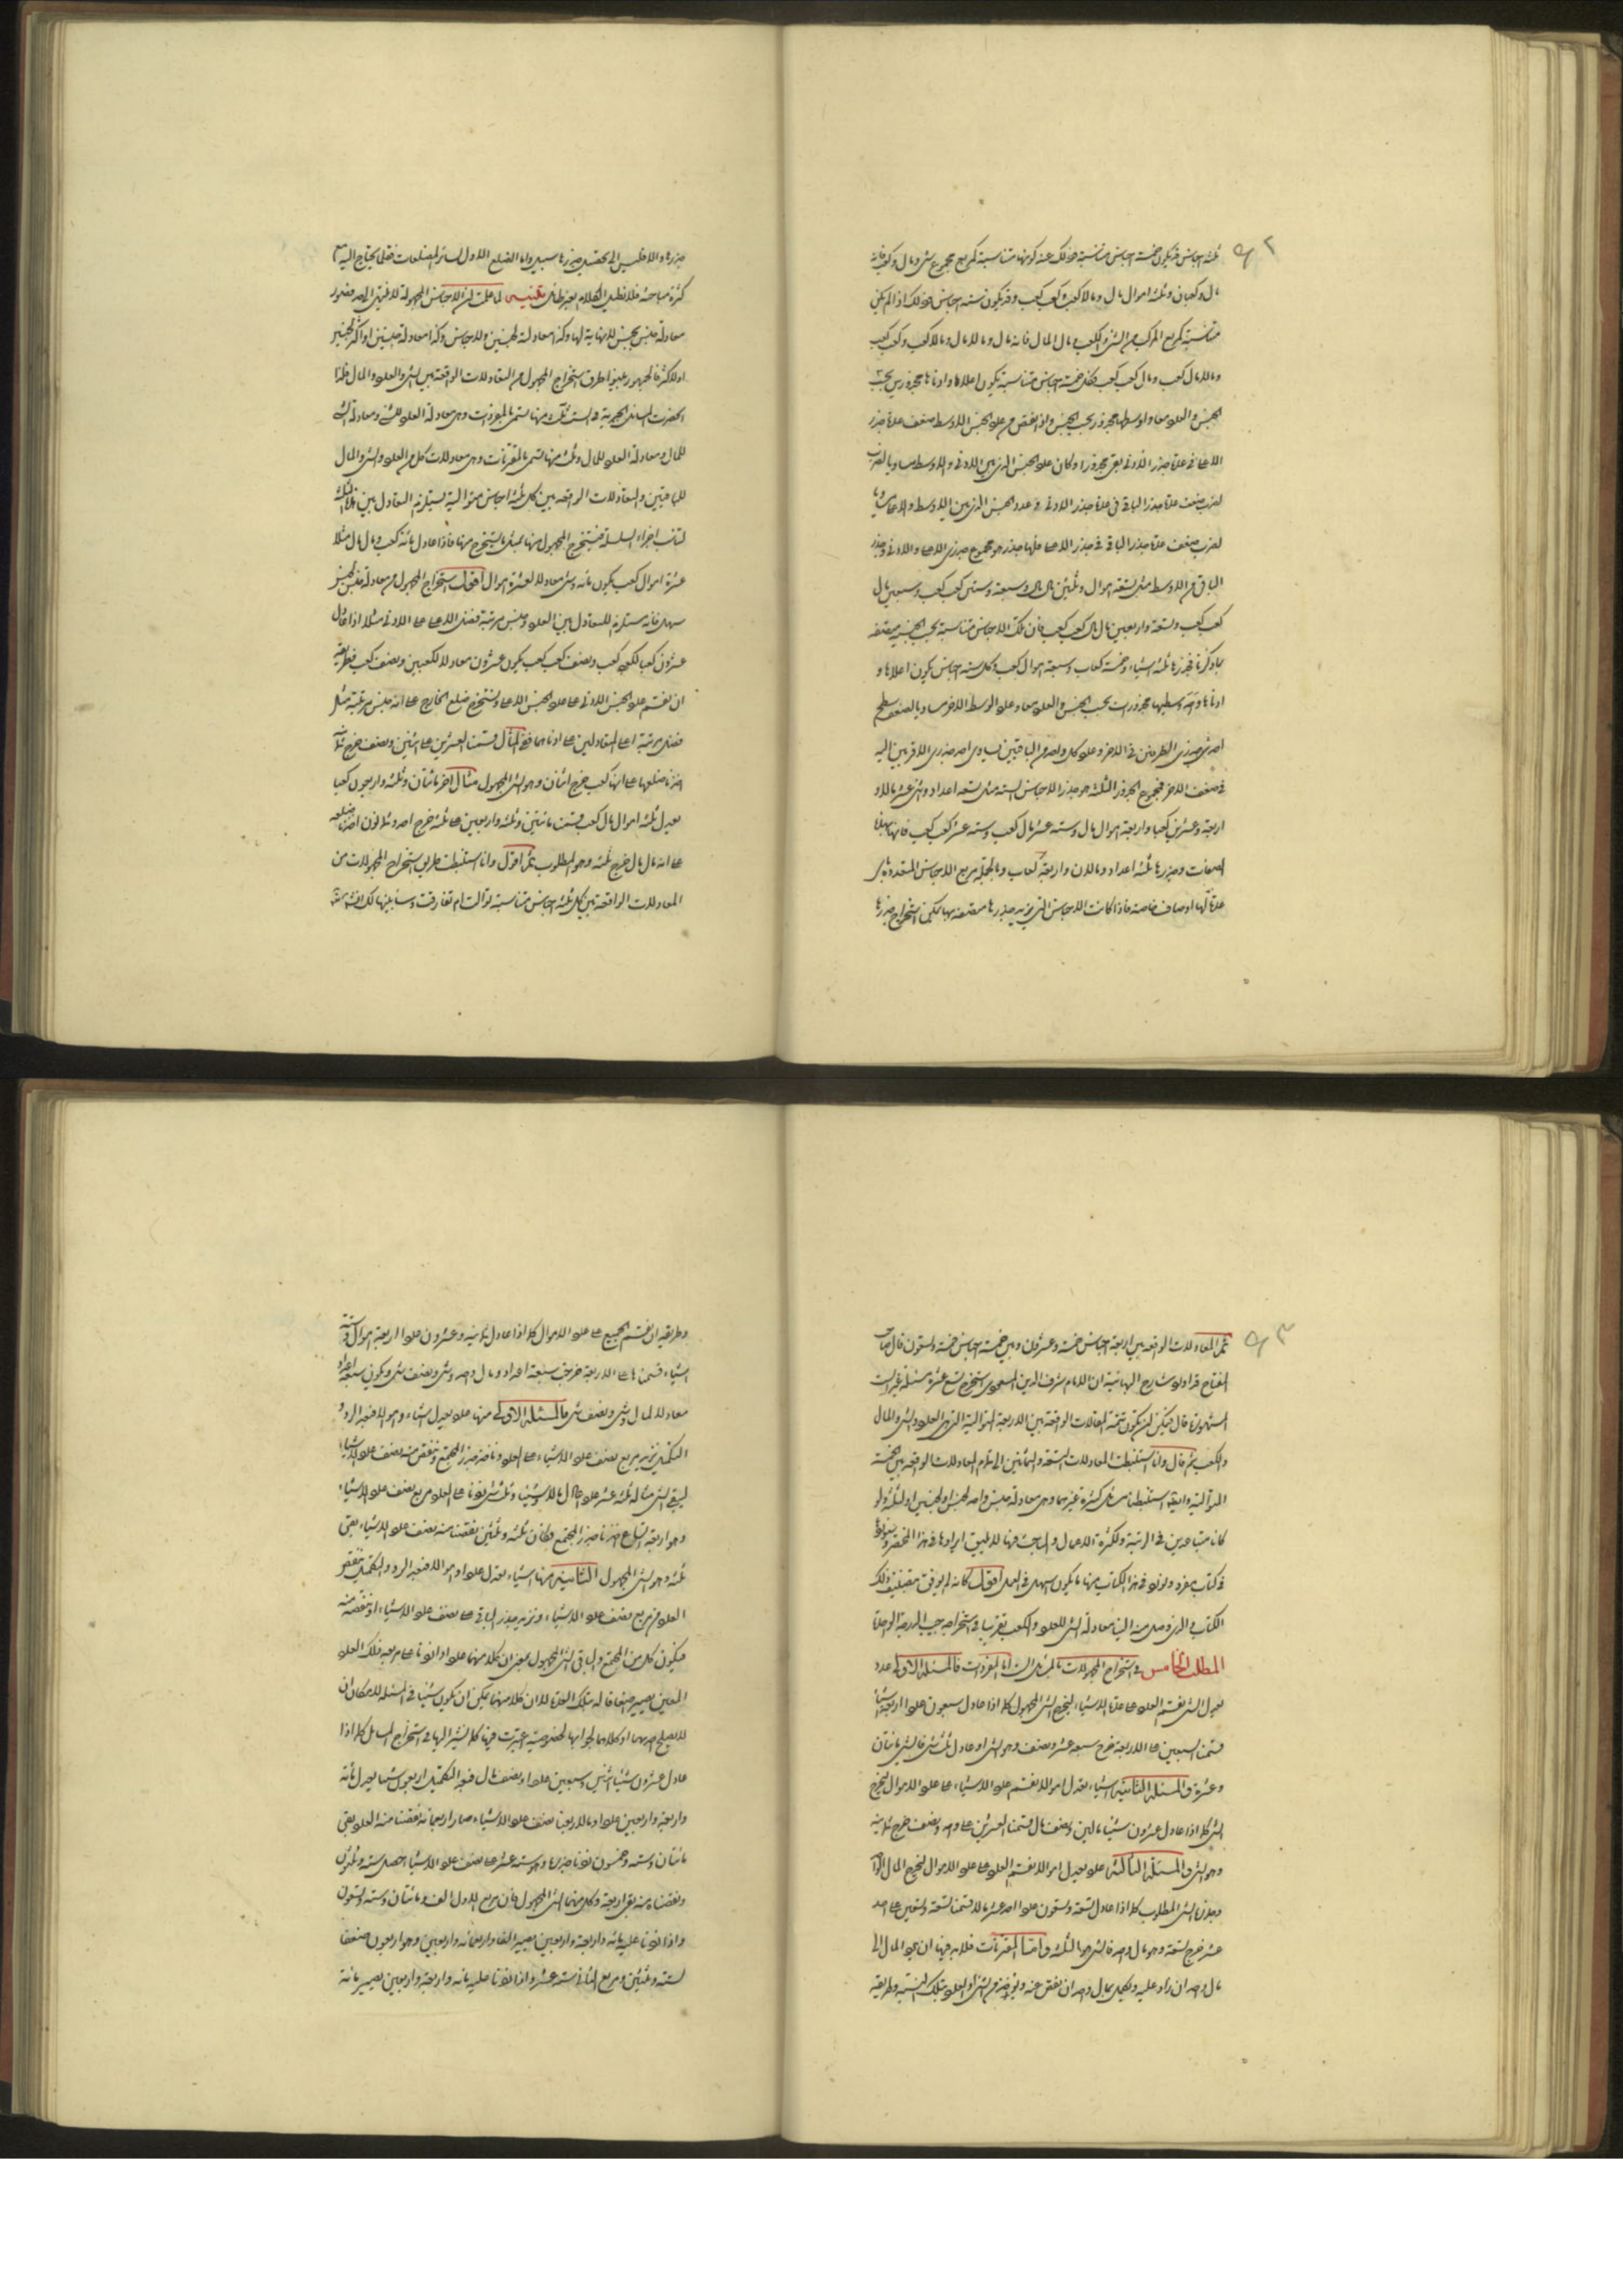 ثلثة اجناس قد يكون خمسة اجناس متناسبة وذلك عند كونها متناسبة كمربع مجموع شئ ومال وكعب فانه
مال وكعبان وثلثة اموال مال ومالا كعب وكعب كعب وقد يكون ستة اجناس وذلك اذا لم يكن
متناسبة كمربع المركب من الشئ والكعب ومال المال فانه مال و مالا مال ومالا كعب وكعب كعب
ومالا مال كعب ومال كعب كعب فكل خمسة اجناس متناسبة يكون اعلاها وادناها مجذورين بحسب
الجنس والعدد معا واوسطها مجذور بحسب الجنس واذا نقص من عدد الجنس الاوسط ضعف عدة جذر
الاعلى في عدة جذر الادنى بقى مجذورا وكان عدد الجنس الذى بين الادنى والاوسط مساويا لضرب
لضرب ضعف عدة جذر الباقى في عدة جذر الادنى وعدد الجنس الذى بين الاوسط والاعلى مساويا
لضرب ضعف عدة جذر الباقى في جذر الاعلى فلها جذر هو مجموع جذرى الاعلى والادنى وجذر
الباقى من الاوسط مثل تسعة اموال وثلثين مال مال وسبعة وستين كعب كعب وسبعين مال
كعب كعب وتسعة واربعين مال مال كعب كعب فان تلك الاجناس متناسبة بحسب الجنس متصفة
بما ذكرنا فجذرها ثلثة اشياء وخمسة كعاب وسبعة اموال كعب وكل ستة اجناس يكون اعلاها و
ادناها واحد وسطيها مجذورات بحسب الجنس والعدد معا وعدد الوسط الاخر مساويا لضعف مسطح
احد جذرى الطرفين في الاخر وعدد كل واحد من الباقيين يساوى احد جذرى الاقربين اليه
في ضعف الاخر فمجموع الجذور الثلثة هو جذر الاجناس الستة مثل تسعة اعداد واثنى عشر مالا و
اربعة وعشرين كعبا واربعة اموال مال وستة عشر مال كعب وستة عشر كعب كعب فانها بهذه
الصفات وجذرها ثلثة اعداد ومالان واربعة كعاب وبالجملة مربع الاجناس المتعددة باى
عدة لها اوصاف خاصة فاذا كانت الاجناس التى نريد جذرها متصفة بها يمكن استخراج جذرها
جذرها والا فليس الى تحصيل جذرها سبيل واما الضلع الاول لسائر المضلعات فقلما يحتاج اليه مع
كثرة مباحثه فلا نطيل الكلام بغير طائل تنبيه لما علمت ان الاجناس المجهولة لا تنتهى الى حد فصور
معادلة جنس بجنس لا نهاية لها وكذا معادلة الجنسين والاجناس وكذا معادلة جنسين او اكثر لجنسين
او لاكثر فالجمهور بينوا طرق استخراج المجهول من المعادلات الواقعة بين الشئ والعدد والمال فلذا
انحصرت المسائل الجبرية في الست ثلث منها تسمى بالمفردات وهى معادلة العدد للشئ ومعادلة الشئ
للمال ومعادلة العدد للمال وثلث منها تسمى بالمقترنات وهى معادلات كل من العدد والشئ والمال
للباقيين والمعادلات الواقعة بين كل ثلثة اجناس متوالية يستلزم التعادل بين هذه الثلثة
لتناسب اجزاء السلسلة فيستخرج المجهول منها بمثل ما يستخرج منها فاذا عادل مائة كعب ومال مال مثلا
عشرة اموال كعب يكون مائة وشئ معادلا لعشرة اموال اقول استخراج المجهول من معادلة جنس لجنس
سهل فانه مستلزم للتعادل بين العدد وجنس مرتبة فضل الاعلى على الادنى مثلا اذا عادل
عشرون كعبا لكعب كعب ونصف كعب كعب يكون عشرون معادلا لكعبين ونصف كعب فطريقه
ان نقسم عدد الجنس الادنى على عدد الجنس الاعلى ونستخرج ضلع الخارج على انه جنس مرتبة مثل
فضل مرتبة اعلى المتعادلين على ادناهما ففى المثال قسمنا العشرين على اثنين ونصف خرج ثمانية
اخذنا ضلعها على انها كعب خرج اثنان وهو الشئ المجهول مثال اخر مائتان وثلثة واربعون كعبا
يعدل ثلثة اموال مال كعب قسمت مائتين وثلثة واربعين على ثلثة خرج احد وثمانون اخذنا ضلعه
على انه مال مال خرج ثلثة وهو المطلوب ثم اقول وانا استنبطت طريق استخراج المجهولات من
المعادلات الواقعة بين كل ثلثة اجناس متناسبة توالت ام تفارقت وسابينها لك انشاء الله
ثم المعادلات الواقعة بين اربعة اجناس خمسة وعشرون وبين خمسة اجناس خمسة وتسعون قال صاحب
المفتاح قد اورد شارح البهائية ان الامام شرف الدين المسعودى استخرج تسع عشرة مسئلة غير الست
المشهورة قال فيمكن ان يكون تتمة المعادلات الواقعة بين الاربعة المتوالية التى هى العدد والشئ والمال
والكعب ثم قال وانا استنبطت المعادلات التسعة والثمانين الى تمام المعادلات الواقعة بين الخمسة
المتوالية وايضا استنبطنا مسائل كثيرة غيرهما وهى معادلة جنس واحد لجنس او لجنسين او لثلثة ولو
كانا متباعدين في المرتبة ولكثرة الاعمال والمباحث فيها لا يليق ايرادها في هذا المختصر وسنوردها
في كتاب مفرد ونورد في هذا الكتاب منها ما يكون سهل في العمل اقول كانه لم يوفق لتصنيف ذلك
الكتاب والذى وصل منه الينا معادلة الشئ للعدد والكعب تقريبا في استخراج جيب الدرجة الواحدة
المطلب الخامس في استخراج المجهولات بالمسائل الست اما المفردات فالمسئلة الاولى عدد
يعدل الشئ يقسم العدد على عدة الاشياء ليخرج الشئ المجهول كما اذا عادل سبعون عددا اربعة اشياء
قسمنا السبعين على الاربعة خرج سبعة عشر ونصف وهو الشئ او عادل ثلث شئ فالشئ مائتان
وعشرة والمسئلة الثانية اشياء يعدل اموالا نقسم عدد الاشياء على عدد الاموال ليخرج
الشئ كما اذا عادل عشرون شيئا مالين ونصف مال قسمنا العشرين على اثنين ونصف خرج ثمانية
وهو الشئ والمسئلة الثالثة عدد يعدل اموالا نقسم العدد على عدد الاموال ليخرج المال الواحد
وجذره الشئ المطلوب كما اذا عادل تسعة وتسعون عددا احد عشر مالا قسمنا تسعة وتسعين على احد
عشر خرج تسعة وهو مال واحد فالشئ هو الثلثة واما المقترنات فلا بد فيها ان يرد المال الى
مال واحد ان زاد عليه ويكمل بمال واحد ان نقص عنه ويؤخذ من الشئ والعدد بتلك النسبة وطريقه
وطريقه ان نقسم الجميع على عدد الاموال كما اذا عادل ثمانية وعشرون عددا اربعة اموال وستة
اشياء قسمناها على الاربعة خرجت سبعة اعداد ومال واحد وشئ ونصف شئ ويكون سبعة اعداد
معادلا لمال وشئ ونصف شئ فالمسئلة الاولى منها عدد يعدل اشياء واموالا فبعد الرد و
التكميل نزيد مربع نصف عدد الاشياء على العدد وناخذ جذر المجتمع وننقص منه نصف عدد الاشياء
ليبقى الشئ مثاله ثلثة عشر عددا يعادل مالا وشيئا وثلث شئ زدنا على العدد مربع نصف عدد الاشياء
وهو اربعة اتساع اخذنا جذر المجتمع وكان ثلثة وثلثين نقصنا منه نصف عدد الاشياء بقى
ثلثة وهو الشئ المجهول الثانية منها اشياء يعدل عددا واموالا فبعد الرد والتكميل ننقص
العدد من مربع نصف عدد الاشياء ونزيد جذر الباقى على نصف عدد الاشياء او ننقصه منه
فيكون كل من المجتمع والباقى الشئ المجهول بمعنى ان كلا منهما عدد اذا زدنا على مربعه ذلك العدد
المعين يصير ضعفا له بتلك العدة لا ان كلا منهما يمكن ان يكون شيئا في المسئلة لامكان ان
لا يصلح احدهما او كلاهما لجوابها لخصوصية اعتبرت فيها كما نشير اليها في استخراج المسائل كما اذا
عادل عشرون شيئا اثنين وسبعين عددا ونصف مال فبعد التكميل اربعون شيئا يعدل مائة
واربعة واربعين عددا ومالا ربعنا نصف عدد الاشياء صار اربعمائة نقصنا منه العدد بقى
مائتان وستة وخمسون زدنا جذرها وهو ستة عشر على نصف عدد الاشياء حصل ستة وثلثون
ونقصناه منه بقى اربعة وكل منهما الشئ المجهول فان مربع الاول الف ومائتان وستة وتسعون
واذا زدنا عليه مائة واربعة واربعين يصير الفا واربعمائة واربعين وهو اربعون ضعفا
لستة وثلثين ومربع الثانى ستة عشر واذا زدنا عليه مائة واربعة واربعين يصير مائة